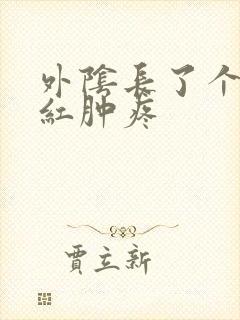 外陰長了个
紅肿疼
賈立新